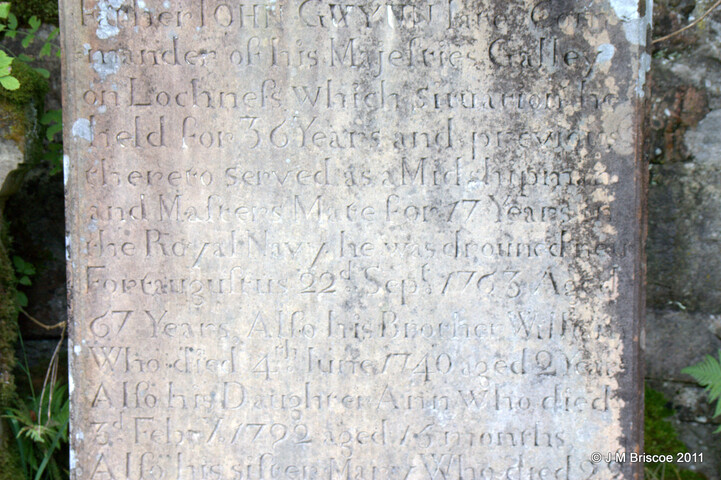 Father JOHN GWYNN late Com
mander of his Majeſties Galley
on Lochneſs which situation he
held for 36 Years and previous
thereto served as a Midshipman
and Maſters Mate for 17 Years in
the Royal Navy he was drouned near
Fortauguſtus 22d Sepr 1763 Aged
67 Years Alſo his Brother William
Who died 4th June 1740 aged 2 Years
Alſo his Daughter Ann Who died
3d Febry 1792 aged 15 months
Alſo his siſter Mary Who died
© J-M Briscoe 2011